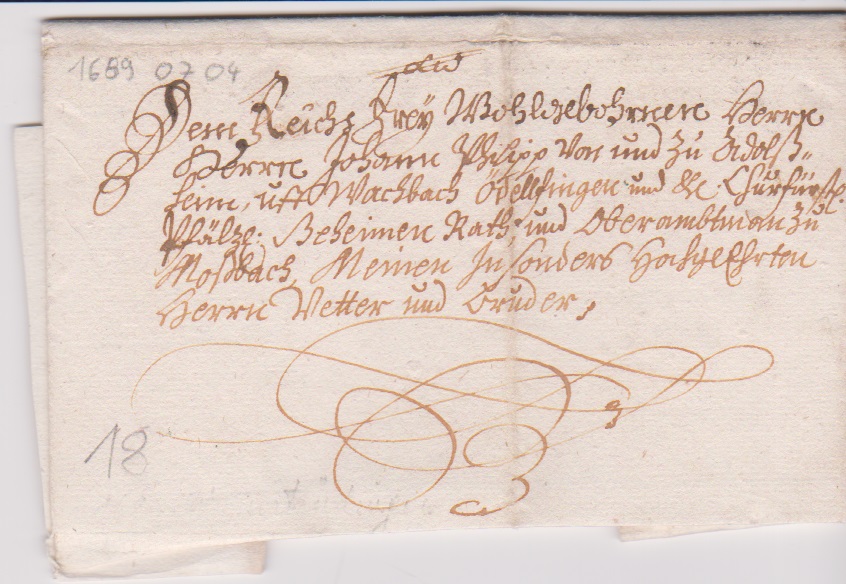 1689 07 04
Dem Reichs Freÿ Wohlgebohrnen Herrn
Herrn Johann Philipp Von und zu Adolß-
heim, uff Wachbach und Churfürstl.
Pfältz: Geheimen Rath und Oberambtman zu
Moßbach, Meinen Insonders Hochgeehrten
Herrn Vetter und Bruder,
18